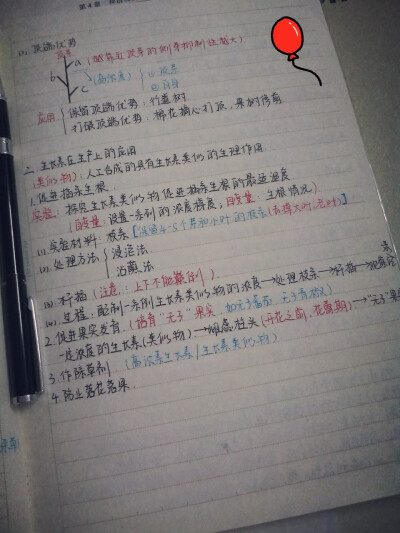 第4章
(2). 顶端优势
a (越靠近顶芽的侧芽抑制性越大).
b
c (高浓度) ① 顶芽
② 侧芽
应用 { 保留顶端优势: 行道树.
打破顶端优势: 棉花摘心打顶, 果树修剪
二. 生长素在生产上的应用
(类似物): 人工合成的具有生长素类似的生理作用
1. 促进扦插生根.
实验: 探究生长素类似物促进扦插生根的最适浓度
(自变量: 设置一系列的浓度梯度; 因变量: 生根情况)
(1). 实验材料: 枝条【保留4-5个芽和小叶的枝条(去掉大叶.老叶)】
(2). 处理方法 { 浸泡法.
沾蘸法
(3) 扦插 (注意: 上下不能颠倒)
(4). 过程: 配制一系列生长素类似物的浓度→处理枝条→扦插→观察
2. 促进果实发育 (培育"无子"果实, 如无子番茄, 无子
一定浓度的生长素(类似物)→雌蕊柱头(开花之前, 花蕾期)→"无子"果实
3. 作除草剂. (高浓度生长素/生长素类似物)
4. 防止落花落果.